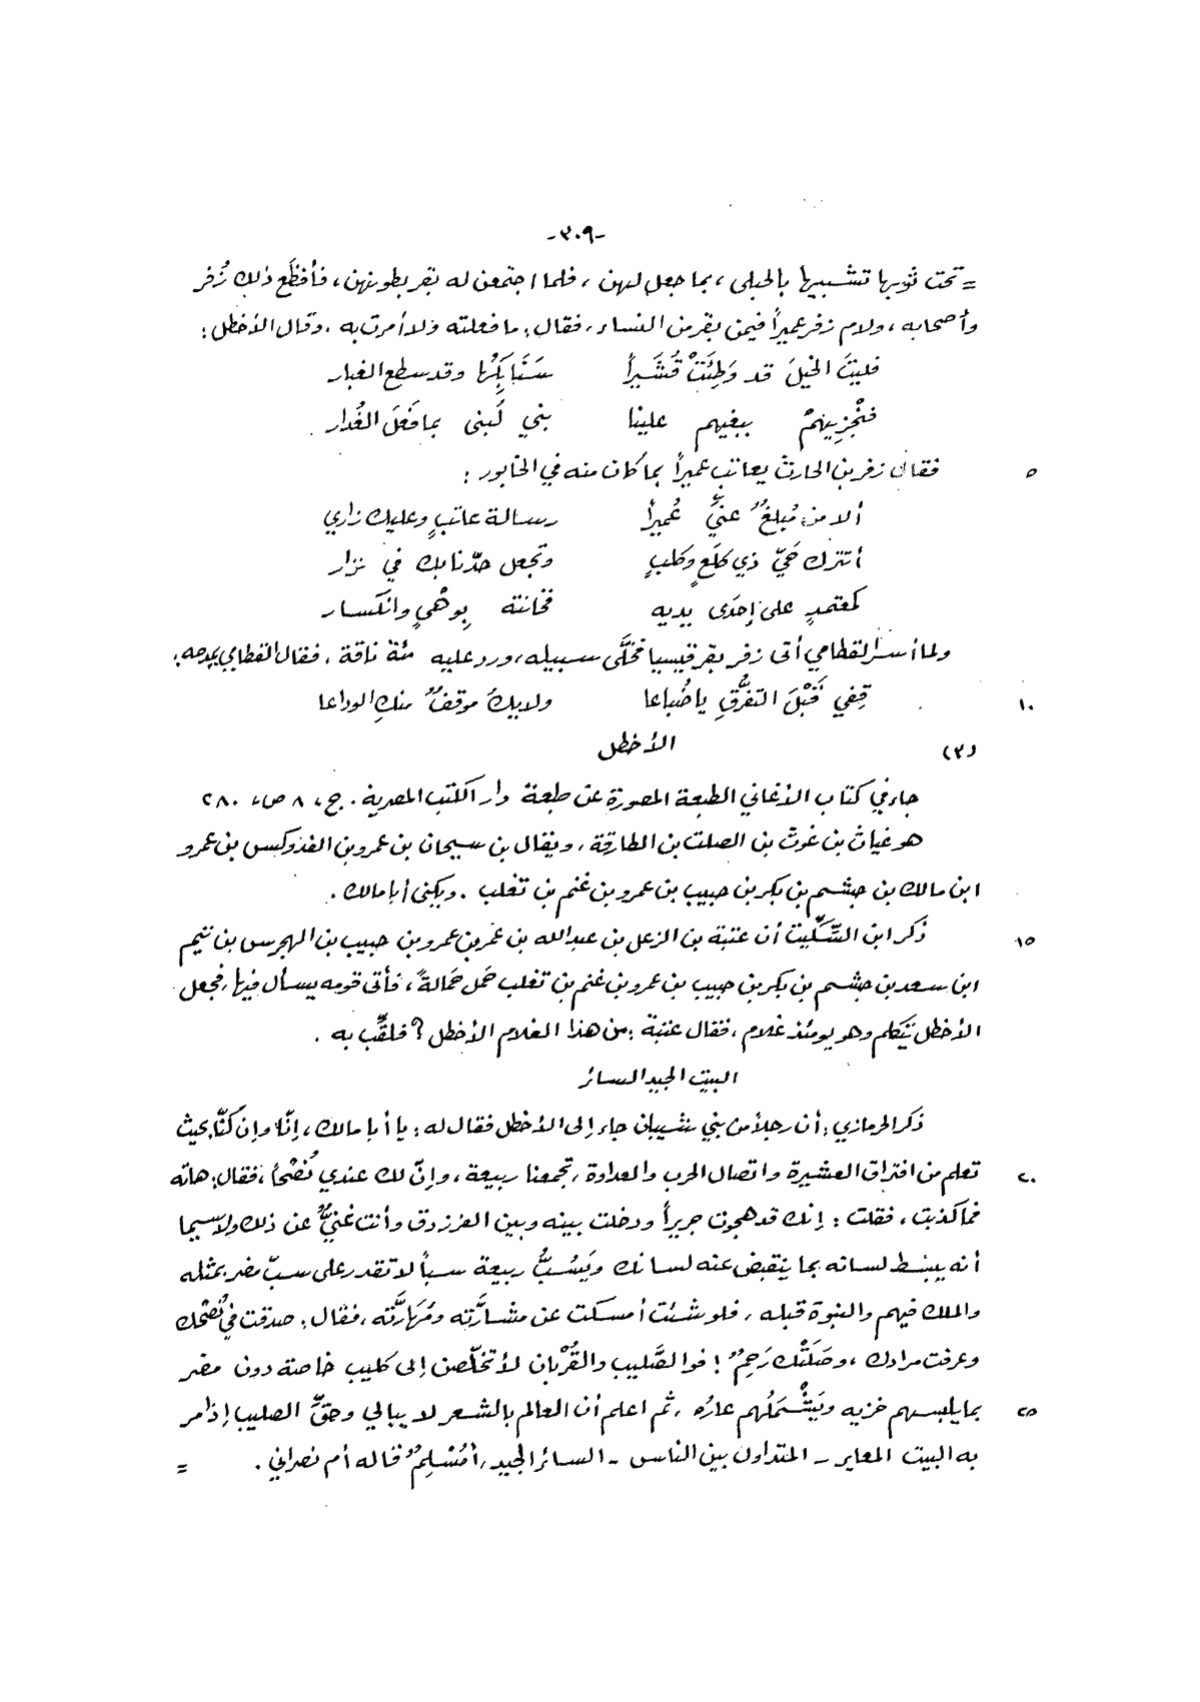 -٣٠٩-
= تحت ثوبها تشبيهاً بالحبلى، بما جعل لهن، فلما اجتمعن له بقر بطونهن، فأفظَع ذلك زُفر
وأصحابه، ولام زفر عميراً فيمن بقر من النساء، فقال: ما فعلته ولا أمرت به، وقال الأخطل:
فليتَ الخيلَ قد وَطِئَتْ قُشَيراً سَنَابِكُها وقد سطع الغبار
فنجْزِيهمْ ببغيهم علينا بني لُبنى بما فَعَلَ الغُدار.
٥ فقال زفر بن الحارث يعاتب عميراً بما كان منه في الخابور:
ألا من مُبلغٌ عنيِّ عُميراً رسالة عاتبٍ وعليك زاري
أتترك حَيّ ذي كلَعٍ وكلبٍ وتجعل حدّنا بك في نزار
كمعتمدٍ على إحدَى يديه فخانته بِوهْيٍ وانكسار
ولما أسر القطامي أتى زفر بقرقيسيا فخلَّى سبيله، ورد عليه مئة ناقة، فقال القطامي يمدحه:
١٠ قِفي قَبْلَ التفرُّقِ يا ضُباعا ولا يكُ موقفٌ منكِ الوداعا
(٣) الأخطل
جاء في كتاب الأغاني الطبعة المصورة عن طبعة دار الكتب المصرية. ج، ٨ ص، ٢٨٠
هو غياث بن غوث بن الصلت بن الطارقة، ويقال بن سيحان بن عمرو بن الفدوكس بن عمرو
ابن مالك بن جشم بن بكر بن حبيب بن عمرو بن غنم بن تغلب. ويكنى أبا مالك.
١٥ ذكر ابن السّكِّيت أن عتبة بن الزعل بن عبد الله بن عمر بن عمرو بن حبيب بن الهجرس بن تيم
ابن سعد بن جشم بن بكر بن حبيب بن عمرو بن غنم بن تغلب حَمل حَمالةً، فأتى قومه يسأل فيها، فجعل
الأخطل يتكلم وهو يومئذ غلام، فقال عتبة: من هذا الغلام الأخطل؟ فلقِّب به.
البيت الجيد السائر
ذكر الحرمازي: أن رجلاً من بني شيبان جاء إلى الأخطل فقال له: يا أبا مالك، إنّا وإن كنّا بحيث
٢٠ تعلم من افتراق العشيرة واتصال الحرب والعداوة، تجمعنا ربيعة، وإنّ لك عندي نُصْحاً، فقال: هاته
فما كذبت، فقلت: إنك قد هجوت جريراً ودخلت بينه وبين الفرزدق وأنت غنيٌّ عن ذلك ولاسيما
أنه يبسط لسانه بما ينقبض عنه لسانك ويَسُبُّ ربيعة سباً لا تقدر على سبّ مضر بمثله
والملك فيهم والنبوة قبله، فلو شئت أمسكت عن مشارَّته ومُهارَّته، فقال: صدقت في نُصْحك
وعرفت مرادك، وصَلَتْك رَحِمٌ! فوالصَّليب والقُرْبان لأتخلّصن إلى كليب خاصة دون مضر
٢٥ بما يلبسهم خزيه ويَشْمَلُهم عارُه، ثم اعلم أن العالم بالشعر لا يبالي وحقِّ الصليب إذا مر
به البيت المعاير - المتداول بين الناس - السائر الجيد، أمُسْلِمٌ قاله أم نصراني. =